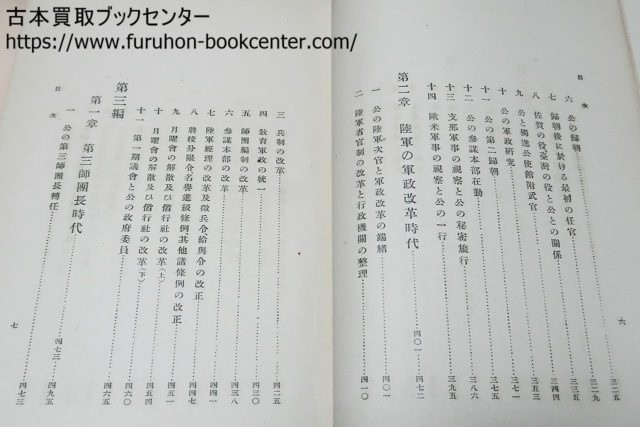 古本買取ブックセンター
https://www.furuhon-bookcenter.com/
目次
六
六 公の歸朝……三二五
七 歸朝後に於ける最初の任官……三二九
八 佐賀の役臺灣の役と公との關係……三三五
九 公と獨逸公使館附武官
十 公の軍政研究
十一 公の第二歸朝……三七一
十二 公の參謀本部在勤
十三 支那軍事の視察と公の秘密旅行……三八六
十四 歐米軍事の視察と公の一行……三九五
第二章 陸軍の軍政改革時代……四〇一―四七二
一 公の陸軍次官と軍政改革の端緒……四〇一
二 陸軍省官制の改革と行政機關の整理……四一〇
三 兵制の改革……四二五
四 敎育軍政の統一……四三〇
五 師團編制の改革……四三八
六 參謀本部の改革
七 陸軍經理の改革及徵兵令給與令の改正
八 將校分限令名譽進級條例其他諸條例の改正
九 月曜會の解散及び偕行社の改革(上)
十 月曜會の解散及び偕行社の改革(下)……四六〇
十一 第一期議會と公の政府委員……四六五
第三編
第一章 第三師團長時代……四七三―四九五
一 公の第三師團長轉任……四七三
目次
七